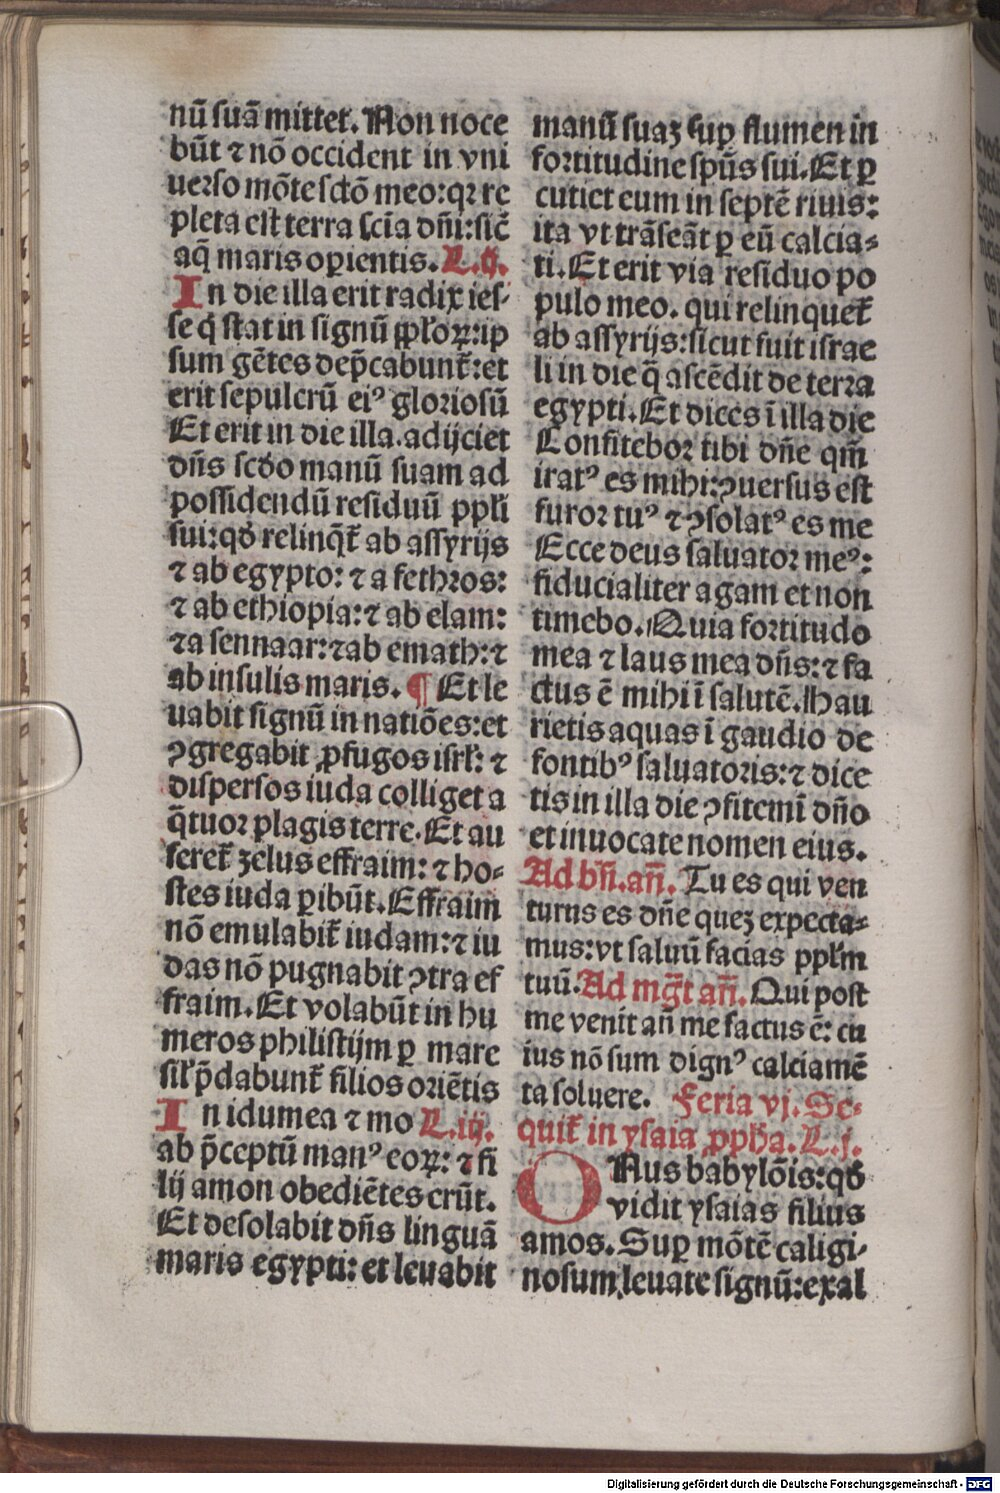 nū suā mittet. Non noce
būt ⁊ nō occident in vni
uerso mōte sctō meo: qꝛ re
pleta est terra scīa dn̄i: sic̄
aq̄ maris oꝑientis. L.ij.
In die illa erit radix ies-
se q̇ stat in signū ppl̓oꝝ: ip
sum gētes dep̄cabunt᷑: et
erit sepulcrū eiꝰ gloriosū
Et erit in die illa. adijciet
dn̄s scd̓o manū suam ad
possidendū residuū ppl̓i
sui: qd̓ relinq̄t᷑ ab assyrijs
⁊ ab egypto: ⁊ a fethros:
⁊ ab ethiopia: ⁊ ab elam:
⁊ a sennaar: ⁊ ab emath: ⁊
ab insulis maris. ¶ Et le
uabit signū in natiōes: et
ꝯgregabit ꝓfugos isrl̓: ⁊
dispersos iuda colliget a
q̄tuor plagis terre. Et au
feret᷑ zelus effraim: ⁊ ho-
stes iuda ꝑibūt. Effraim
nō emulabit᷑ iudam: ⁊ iu
das nō pugnabit ꝯtra ef
fraim. Et volabūt in hu
meros philistijm ꝑ mare
sil̓ p̄dabunt᷑ filios oriētis
In idumea ⁊ mo L.iij.
ab p̄ceptū manꝰ eoꝝ: ⁊ fi
lij amon obediētes erūt.
Et desolabit dn̄s linguā
maris egypti: et leuabit
manū suaꝫ suꝑ flumen in
fortitudine sp̄us sui. Et ꝑ
cutiet eum in septē riuis:
ita vt trāseāt ꝑ eū calcia-
ti. Et erit via residuo po
pulo meo. qui relinquet᷑
ab assyrijs: sicut fuit israe
li in die q̄ ascēdit de terra
egypti. Et dices ī illa die
Confitebor tibi dn̄e qm̄
iratꝰ es mihi: ꝯuersus est
furor tuꝰ ⁊ ꝯsolatꝰ es me
Ecce deus saluator meꝰ:
fiducialiter agam et non
timebo. Quia fortitudo
mea ⁊ laus mea dn̄s: ⁊ fa
ctus ē mihi ī salutē. Hau
rietis aquas ī gaudio de
fontibꝰ saluatoris: ⁊ dice
tis in illa die ꝯfitemī dn̄o
et inuocate nomen eius.
Ad bn̄. an̄. Tu es qui ven
turus es dn̄e quez expecta-
mus: vt saluū facias ppl̓m
tuū. Ad mg̅t an̄. Qui post
me venit an̄ me factus ē: cu
ius nō sum dignꝰ calciamē
ta soluere. Feria vj. Se-
quit᷑ in ysaia ꝓph̓a. L.j.
ONus babylōis: qd̓
vidit ysaias filius
amos. Suꝑ mōtē caligi-
nosum leuate signū: exal
Digitalisierung gefördert durch die Deutsche Forschungsgemeinschaft - DFG